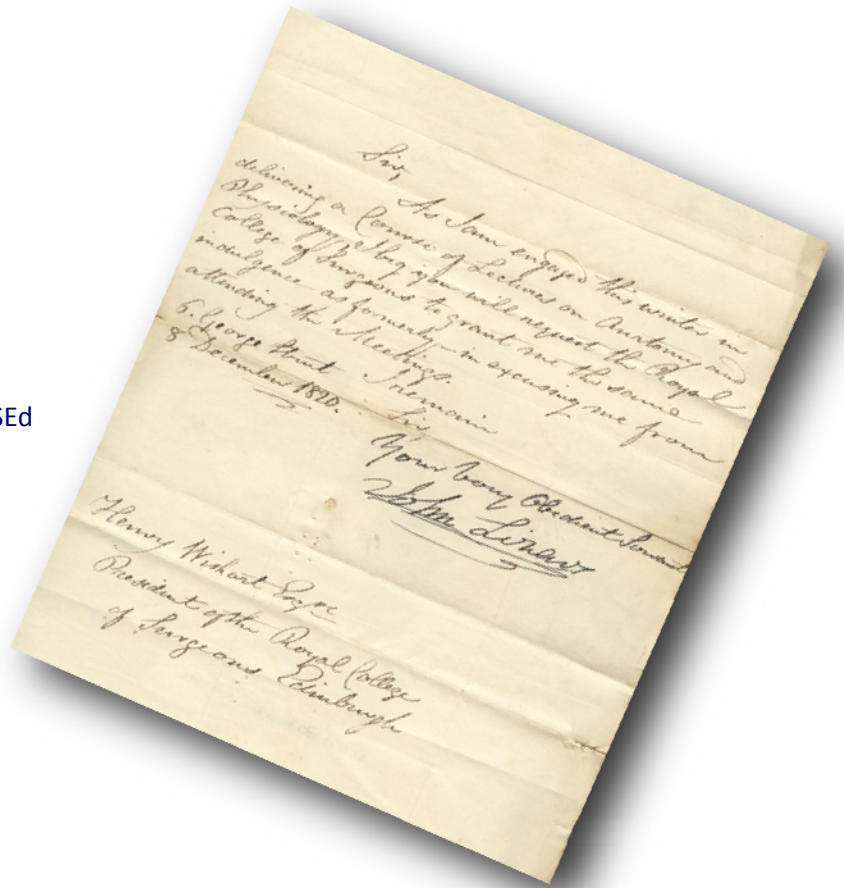 SEd
Sir,
As I am engaged this winter in
delivering a Course of Lectures on Anatomy and
Physiology I beg you will request the Royal
College of Surgeons to grant me the same
indulgence as formerly in excusing me from
attending the Meetings.
I remain
6. George Street
Sir
8 December 1820.
Your very Obedient Servant
John
Henry Wishart Esqre
President of the Royal College
of Surgeons Edinburgh